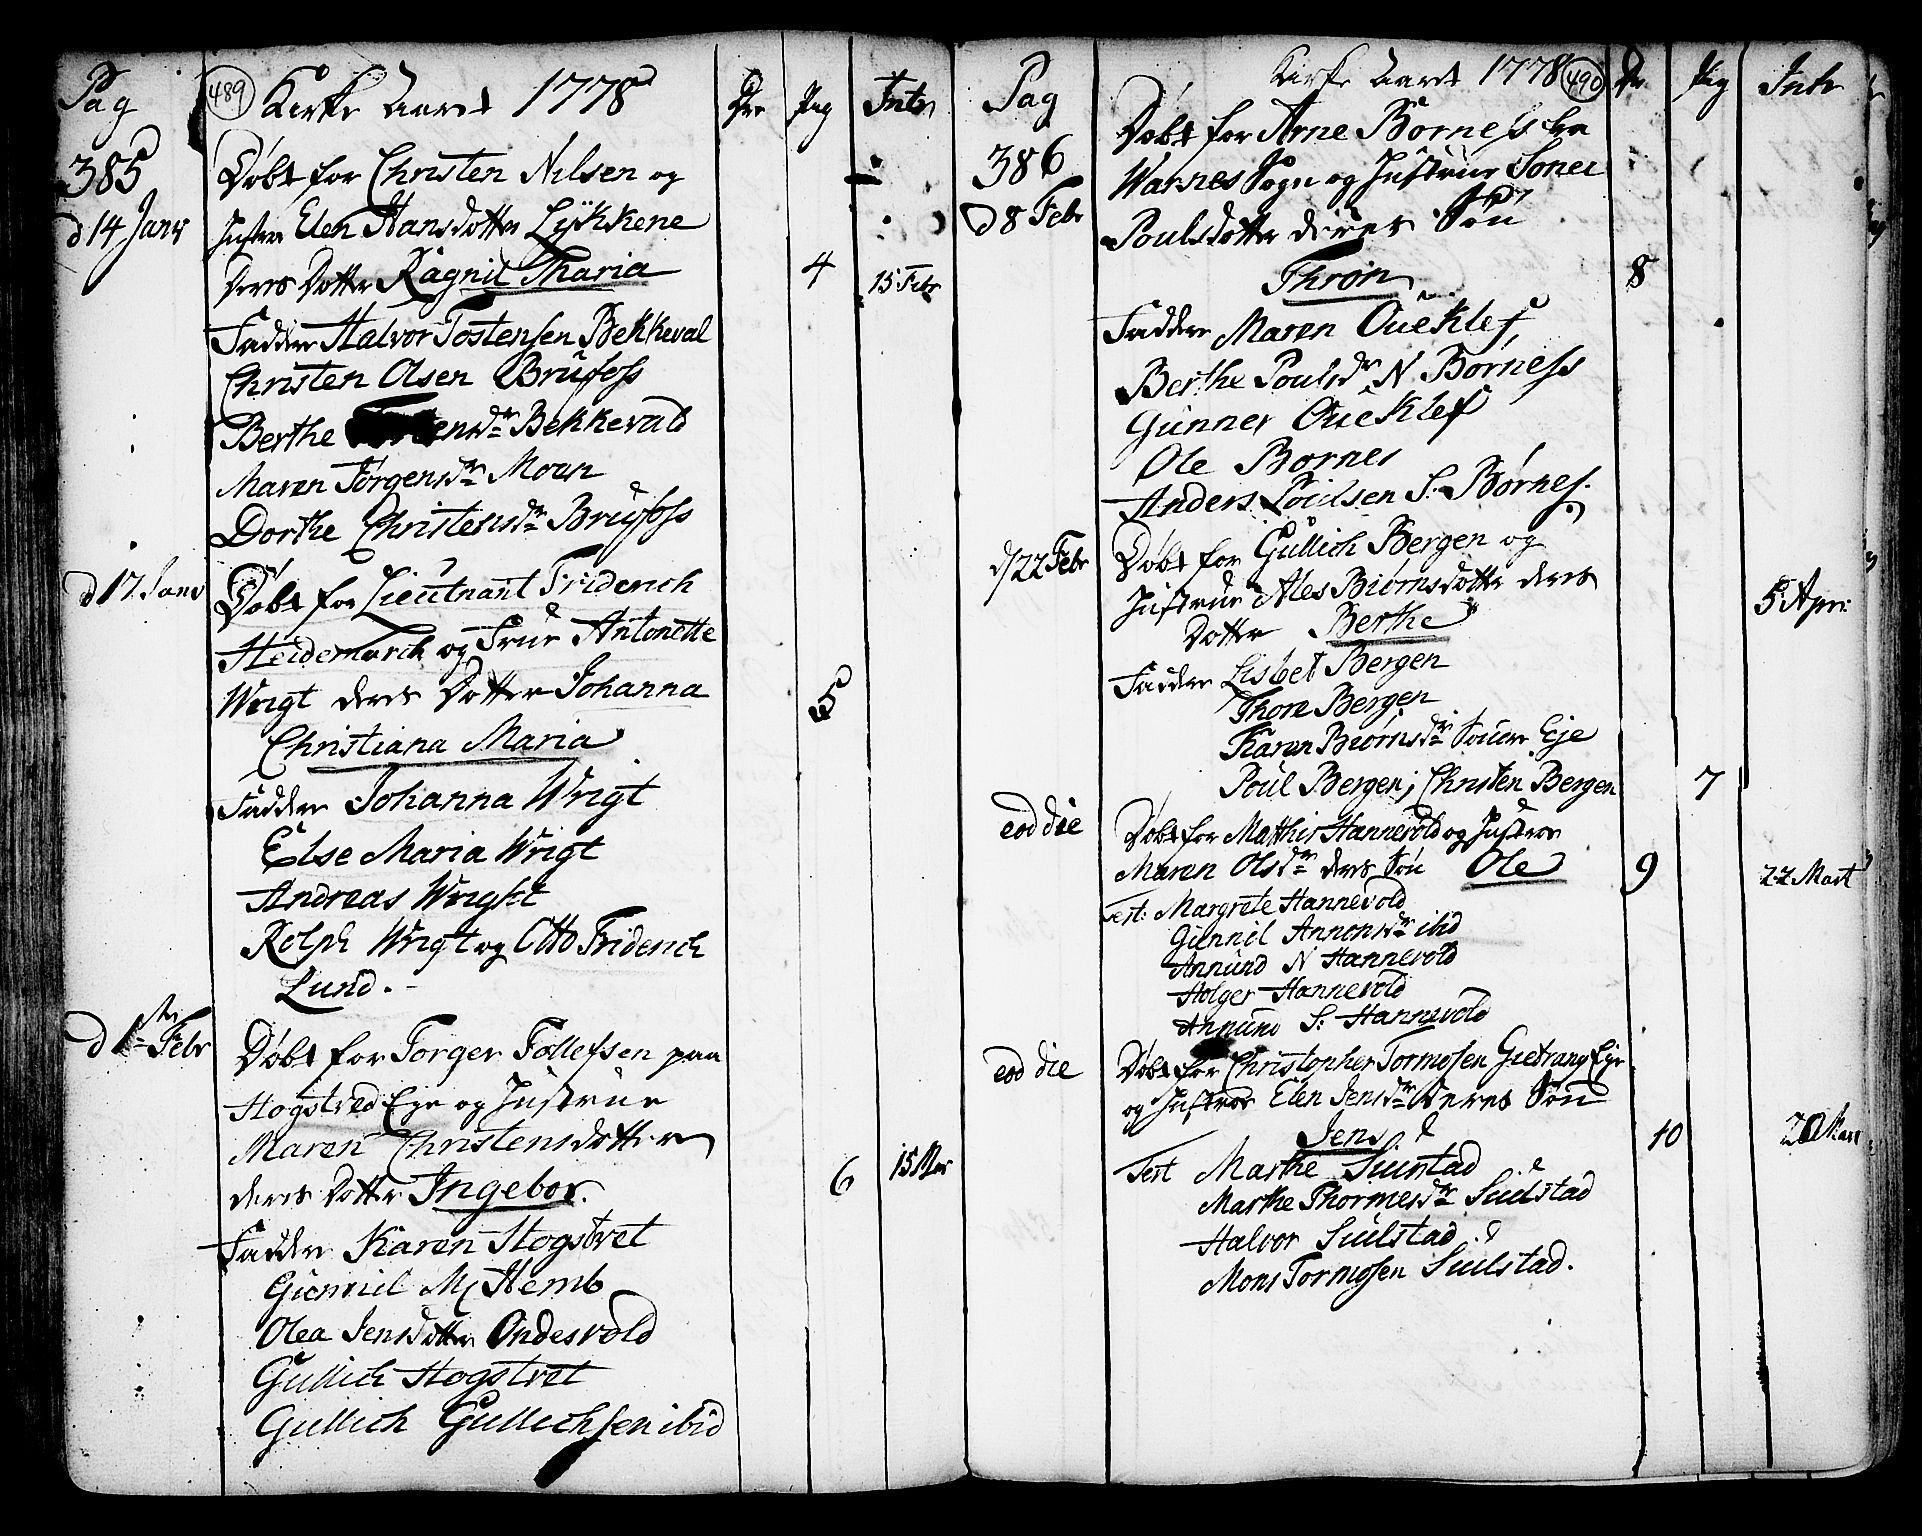 Pag
489
Kirke Aaret 1778
Dr
Pig
Intr
385
d 14 Janv
Døbt for Christen Nilsen og
Hustru Elen Hansdotter Lÿkkene
Deres Dotter Ragnil Tharia
4
15 Febr
Faddere Halvor Tostensen Bekkeval
Christen Olsen Brufoss
Berthe Bekkevald
Maren Jørgensdr Moen
Dorthe Christensdr Brufoss
d 17 Janv
Døbt for Lieutnant Friderich
Heidemarch og Frue Antonette
Wrigt deres Dotter Johanna
Christiana Maria
5
Faddere Johanna Wrigt
Else Maria Wrigt
Andreas Wright
Rolph Wrigt og Otto Friderich
Lund.
d 1ste Febr
Døbt for Torger Tollefsen paa
Hogstved Eye og Hustrue
Maren Christensdotter
deres Dotter Ingebor.
6
15 Mar
Faddere Karen Hogstvet
Gunnil M Hemb
Olea Jensdotter Ondesvold
Gullich Hogstvet
Gullich Gullichsen ibid
Pag
Kirke Aaret 1778
490
Dr
Pig
Intr
386
d 8 Febr
Døbt for Arne Borness fra
Warnes Sogn og Hustrue Sonei
Poulsdotter deres Søn
Thron
8
Faddere Maren Oueklef
Berthe Poulsdr N Børness
Gunner Oueklef
Ole Bornes
Anders Poulsen S: Børnes.
d/22 Febr
Døbt for Gullich Bergen og
Hustrue Ales Biørnsdotter deres
Dotter Berthe
5 Apri:
Faddere Lisbet Bergen
Thore Bergen
Karen Biørnsdr Eje
Poul Bergen; Christen Bergen
7
eod die
Døbt for Mathis Hannevold og Hustroe
Maren Olsdr deres Søn Ole
9
22 Mart
Test: Margrete Hannevold
Gunnil Annonsdr ibid
Annund N Hannevold
Holger Hannevold
Annund S: Hannevold
eod die
Døbt for Christopher Tormosen Gietrang Eye
og Hustroe Elen Jensdr deres Søn
Jens
10
Test Marthe Siulstad
Marthe Thormosdr Siulstad
Halvor Siulstad
Mons Tormosen Siulstad.